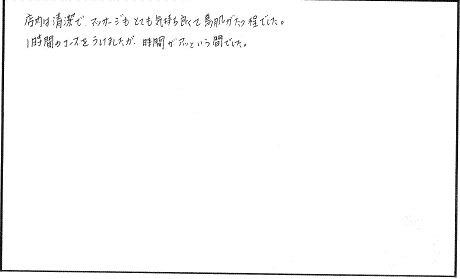 店内は清潔で、マッサージもとても気持ち良くて鳥肌がたつ程でした。
1時間のコースをうけましたが、時間がアッという間でした。